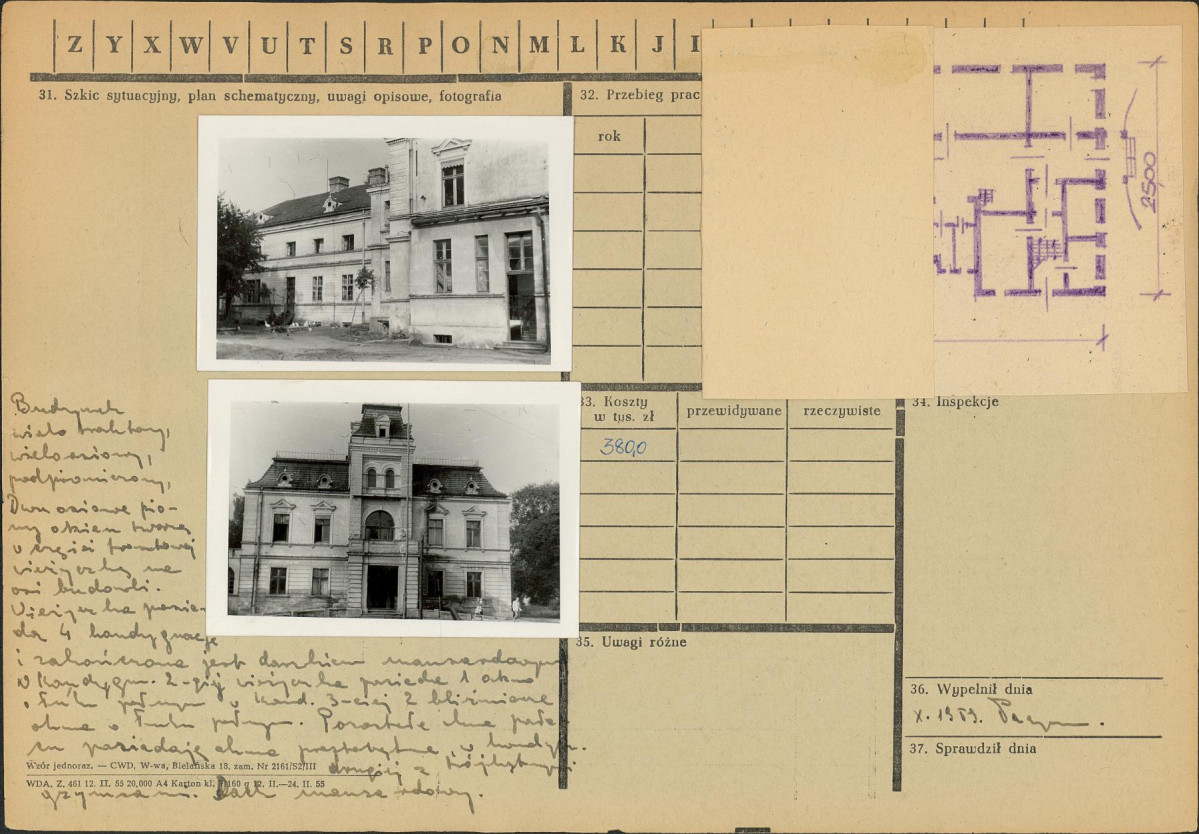 Z Y X W V U T S R P O N M L K J I
31. Szkic sytuacyjny, plan schematyczny, uwagi opisowe, fotografia
32. Przebieg prac
rok
2500
33. Koszty
w tys. zł
przewidywane
rzeczywiste
380,0
34. Inspekcje
35. Uwagi różne
36. Wypełnił dnia
X. 1959.
37. Sprawdził dnia
Budynek
wielo traktowy,
wieloosiowy,
podpiwniczony,
Dwu osiowe pio-
ny okien tworzą
w części frontowej
wieżyczkę na
osi budowli.
Wieżyczka posia-
da 4 kondygnacje
i zakończona jest daszkiem mansardowym
W kondygn. 2-giej wieżyczka posiada 1 okno
o łuku pełnym w kond. 3-ciej 2 bliźniacze
okna o łuku pełnym. Pozostałe
posiadają okna prostokątne, w kondygn.
drugiej z trójkątnymi
gzymsami. Dach mansardowy.
Wzór jednoraz. — CWD, W-wa, Bielańska 18, zam. Nr 2161/S2/III
WDA, Z. 461 12. II. 55 20.000 A4 Karton kl. 160 g 12. II.—24. II. 55